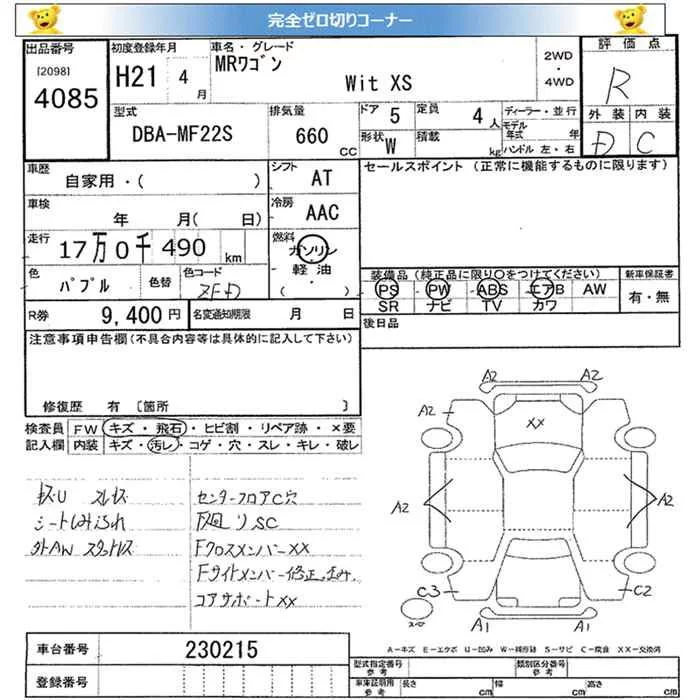 完全ゼロ切りコーナー
出品番号
[2098]
4085
初度登録年月
H21 4月
車名・グレード
MRワゴン
Wit XS
2WD
・
4WD
評価点
R
外装 内装
D C
型式
DBA-MF22S
排気量
660 CC
ドア 5
定員 4人
形状 W
積載 kg
ディーラー・並行
モデル年式 年
ハンドル 左・右
車歴
自家用・( )
シフト AT
セールスポイント (正常に機能するものに限ります)
車検
年 月( 日)
冷房 AAC
走行
17万0千490 km
燃料
ガソリン
軽油・
( )
色
パプル
色替
色コード
ZFD
装備品 (純正品に限り○をつけてください)
PS PW ABS エアB AW
SR ナビ TV カワ
新車保証書
有・無
R券 9,400円
名変通知期限 月 日
後日品
注意事項申告欄(不具合内容等は具体的に記入して下さい)
修復歴 有 〔箇所 〕
検査員 FW キズ・飛石・ヒビ割・リペア跡・×要
記入欄 内装 キズ・汚レ・コゲ・穴・スレ・キレ・破レ
キズU スレキズ
シートしみ汚れ
外AW スタットレス
センターフロアC穴
下廻りSC
FクロスメンバーXX
Fサイドメンバー修正歪み
コアサポートXX
A2 A2
A2
XX
A2 A2
C3 C2
A1 A1
スペア
A-キズ E-エクボ U-凹み W-補修跡 S-サビ C-腐食 XX-交換済
車台番号 230215
登録番号
型式指定番号 参考
類別区分番号 参考
車庫証明用 参考
長さ cm
幅 cm
高さ cm